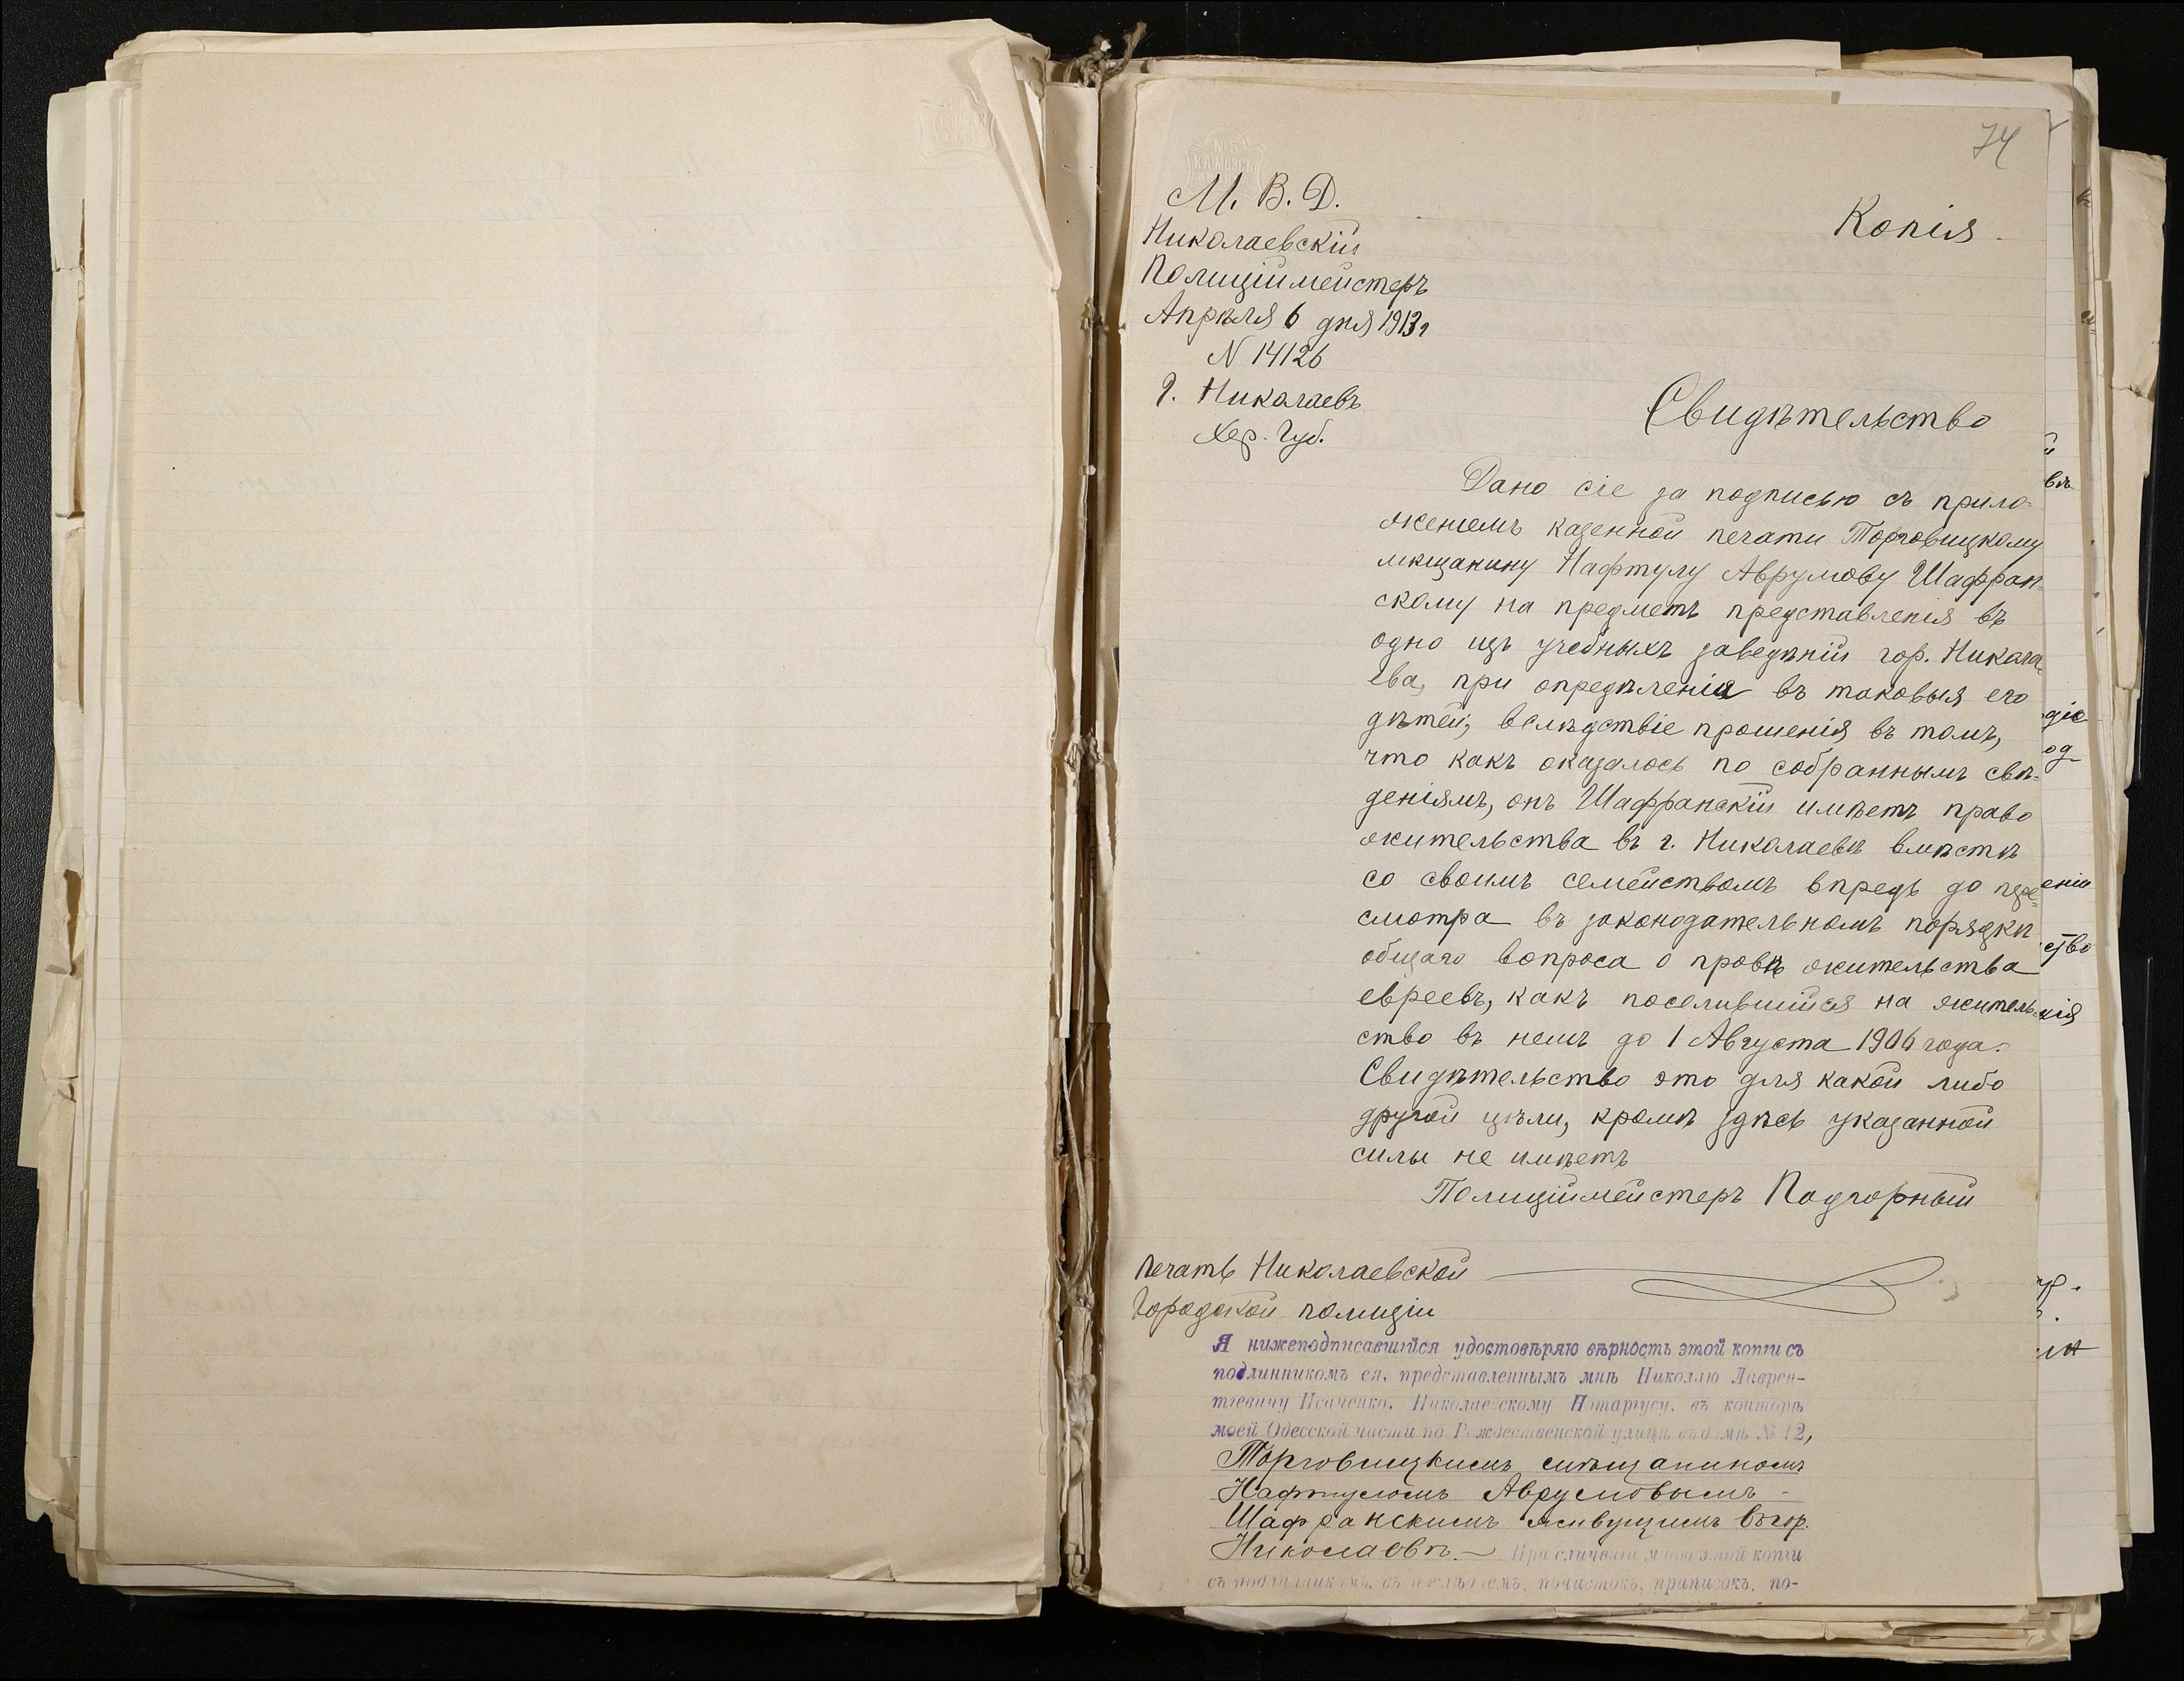 74
М. В. Д.
Копія
Николаевскій
Полиціймейстеръ
Апрѣля 6 дня 1913 г
N 14126
Г. Николаевъ
Хер. Губ.
Свидѣтельство
Дано сіе за подписью съ прило-
женіемъ казенной печати Торговицкому
мѣщанину Нафтулу Аврумову Шафран-
скому на предметъ представленія въ
одно изъ учебныхъ заведѣній гор. Никола-
ева, при опредѣленіи въ таковыя его
дѣтей, вслѣдствіе прошенія въ томъ,
что какъ оказалось по собраннымъ свѣ-
деніямъ, онъ Шафранскій имѣетъ право
жительства въ г. Николаевѣ вмѣстѣ
со своимъ семействомъ впредь до пере-
смотра въ законодательномъ порядкѣ
общаго вопроса о правѣ жительства
евреевъ, какъ поселившійся на житель-
ство въ немъ до 1 Августа 1906 года.
Свидѣтельство это для какой либо
другой цѣли, кромѣ здѣсь указанной
силы не имѣетъ
Полиціймейстеръ Подгорный
Печать Николаевской
Городской полиціи
Я нижеподписавшійся удостовѣряю вѣрность этой копіи съ
подлинникомъ ея, представленнымъ мнѣ Николаю Лаврен-
тіевичу Исаченко, Николаевскому Нотаріусу, въ конторѣ
моей Одесской части по Рождественской улицѣ въ домѣ № 12,
Торговицкимъ мѣщаниномъ
Нафтуломъ Аврумовымъ -
Шафранскимъ живущимъ въ гор.
Николаевѣ.— При сличеніи мною этой копіи
съ подлинникомъ, въ послѣднемъ, почистокъ, приписокъ, по-